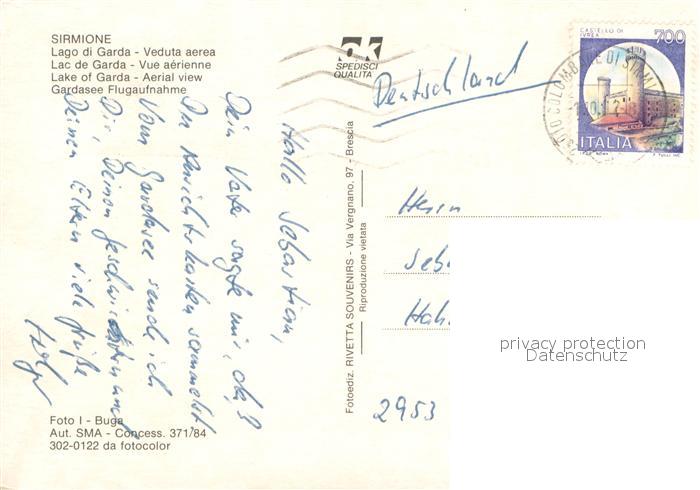 SIRMIONE
Lago di Garda - Veduta aerea
Lac de Garda - Vue aérienne
Lake of Garda - Aerial view
Gardasee Flugaufnahme
ok
SPEDISCI
QUALITÀ
CASTELLO DI
IVREA
700
ITALIA
Deutschland
Hallo Sebastian,
Dein Vater sagte mir, daß
Du Ansichtskarten sammelst.
Vom Gardasee sende ich
Dir, Deinen Geschwistern und
Deinen Eltern viele Grüße
Herrn
Seb
Hah
2953
privacy protection
Datenschutz
Fotoediz. RIVETTA SOUVENIRS - Via Vergnano, 97 - Brescia
Riproduzione vietata
Foto I - Buga
Aut. SMA - Concess. 371/84
302-0122 da fotocolor